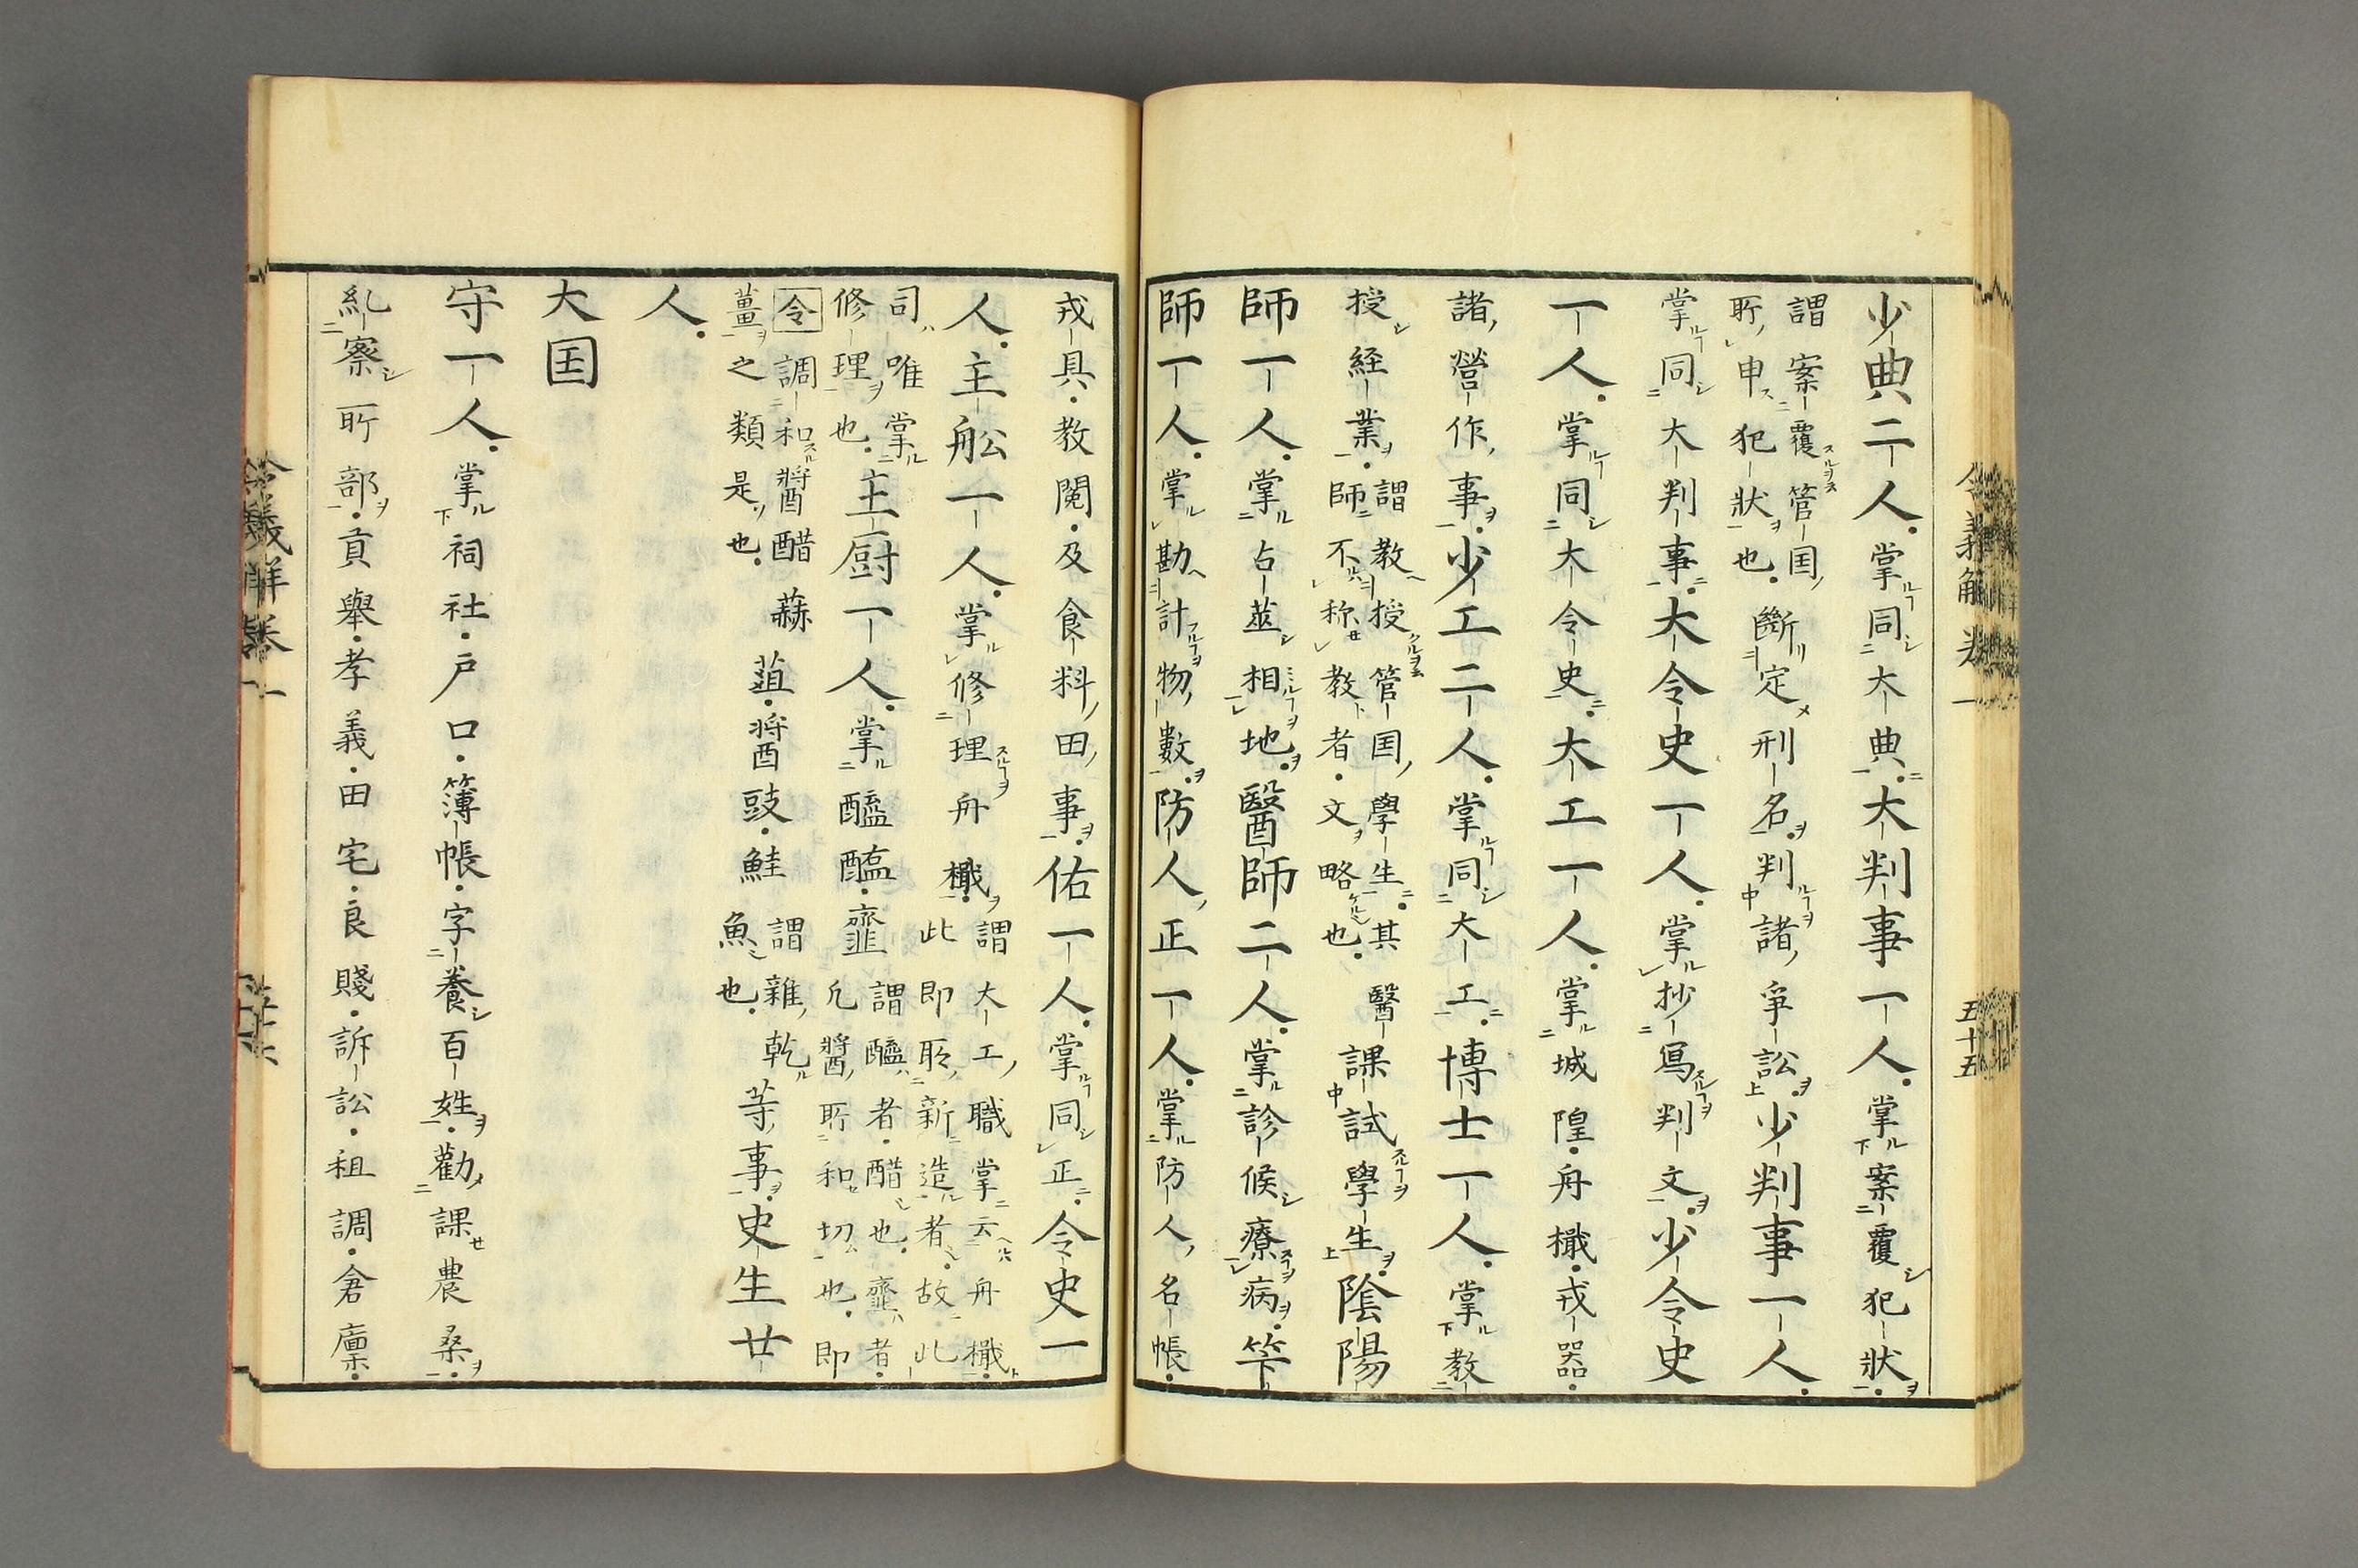 令義解卷一 五十五
少典二人掌同大典大判事一人掌案覆犯狀
謂案覆管囯
所申犯狀也
斷定刑名判諸爭訟少判事一人
掌同大判事大令史一人掌抄寫判文少令史
一人掌同大令史大工一人掌城隍舟檝戎器
諸營作事少工二人掌同大工博士一人掌教
授経業
謂教授管囯學生其醫
師不称教者文略也
課試學生陰陽
師一人掌占莁相地醫師二人掌診候療病笇
師一人掌勘計物數防人正一人掌防人名帳
戎具教閲及食料田事佑一人掌同正令史一
人主舩一人掌修理舟檝
謂大工職掌云舟檝
此即取新造者故此
司唯掌
修理也
主厨一人掌醯醢韲
謂醯者醋也韲者
凡醬所和切也即
令調和醬醋蒜
薑之類是也
葅醬豉鮭
謂雜乾
魚也
等事史生廿
人
大囯
守一人掌祠社戶口簿帳字養百姓勸課農桑
糺察所部貢舉孝義田宅良賤訴訟租調倉廩